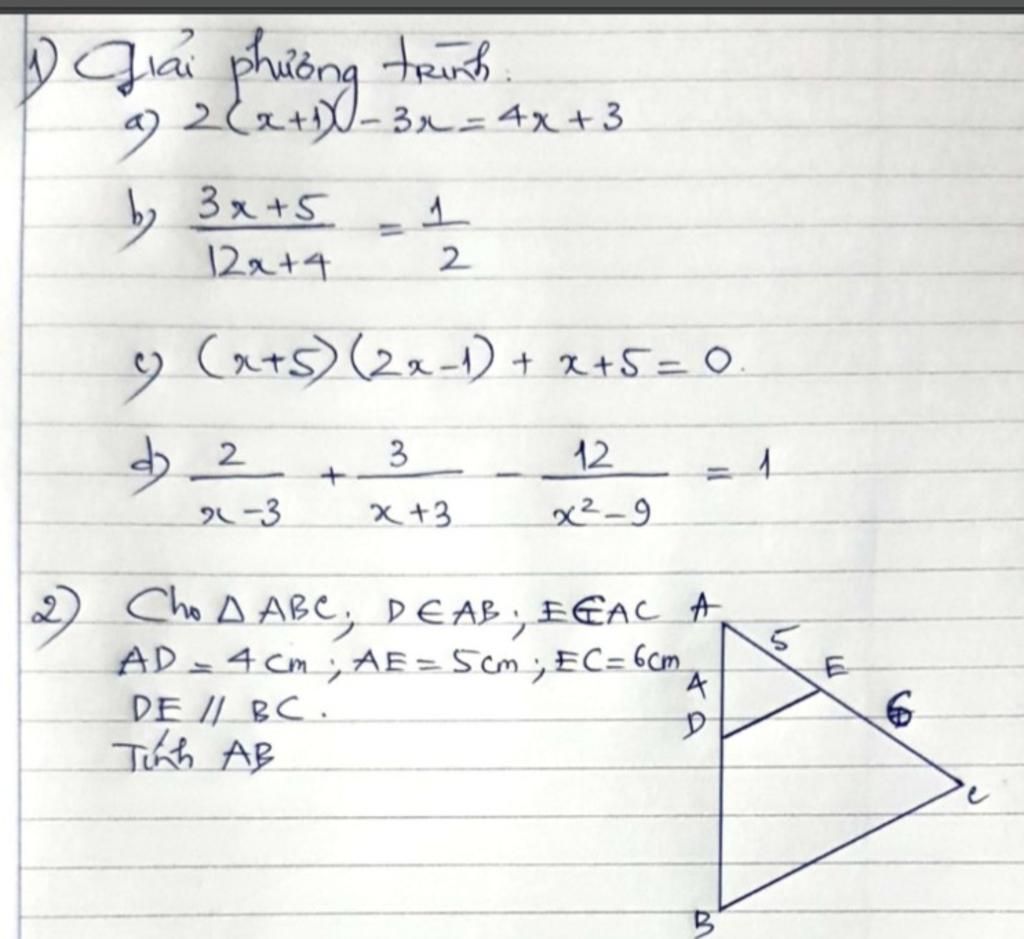 1) Giải phương trình.
a) 2(x+1) - 3x = 4x + 3
b) (3x+5)/(12x+4) = 1/2
c) (x+5)(2x-1) + x+5 = 0.
d) 2/(x-3) + 3/(x+3) - 12/(x²-9) = 1
2) Cho Δ ABC; D ∈ AB; E ∈ AC
AD = 4cm; AE = 5cm; EC = 6cm
DE // BC.
Tính AB
A
5
E
4
6
D
C
B